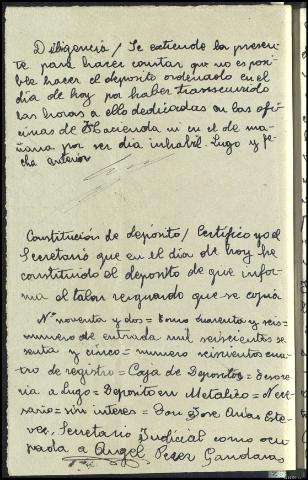 Diligencia / Se extiende la presen-
te para hacer constar que no es posi-
ble hacer el deposito ordenado en el
dia de hoy por haber transcurrido
las horas a ello dedicadas en las ofi-
cinas de Hacienda ni en el de ma-
ñana por ser dia inhabil. Lugo y fe-
cha anterior
Constitución de depósito / Certifico yo el
Secretario que en el dia de hoy he
constituido el deposito de que infor-
ma el talon resguardo que se copia
Nº noventa y dos = Tomo cuarenta y seis =
numero de entrada mil seiscientos se-
senta y cinco = numero seiscientos cua-
tro de registro = Caja de Depositos = Tesore-
ria a Lugo = Deposito en Metalico = Nece-
sario = sin interes = Don Jose Arias Este-
vez, Secretario Judicial como ocu-
pada a Angel Perez Gandaras